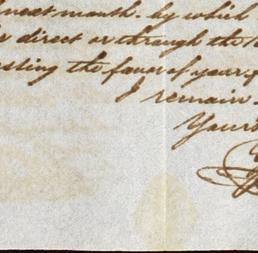 next month. by which
direct or through the
the favor of your
I remain
Yours